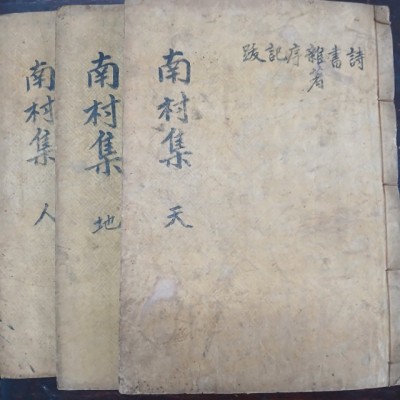 詩書雜序記跋
著
南村集 天
南村集 地
南村集 人